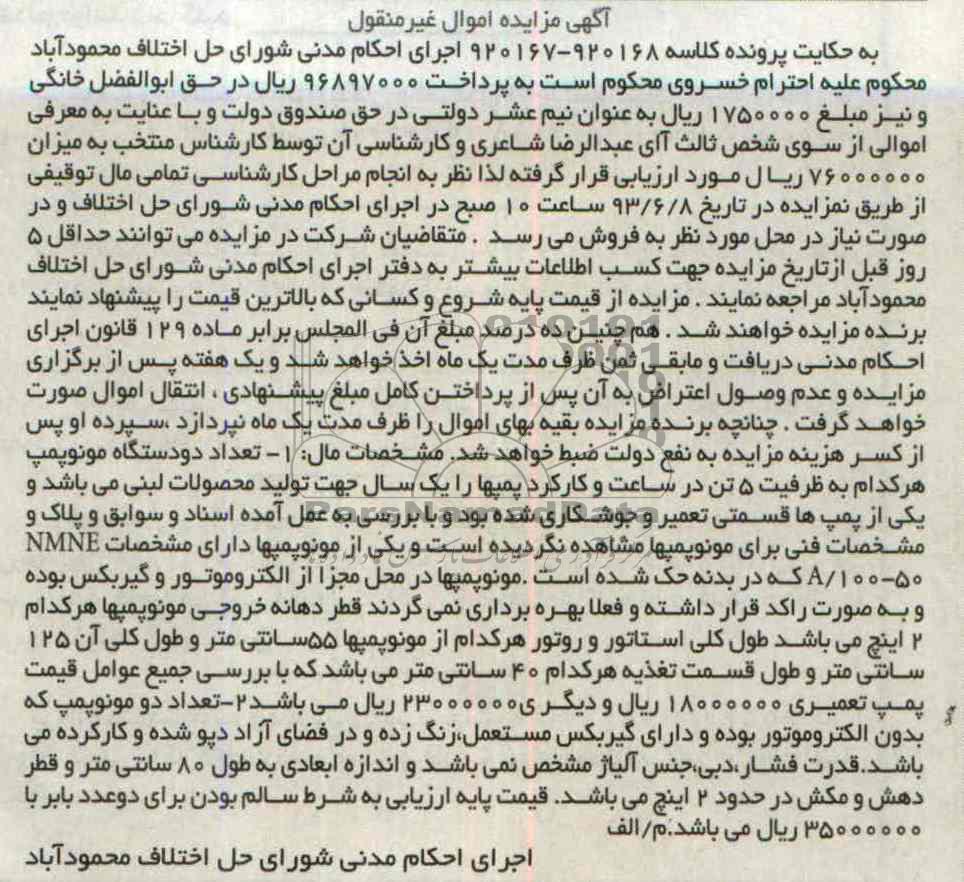 آگهی مزایده اموال غیرمنقول
به حکایت پرونده کلاسه ۹۲۰۱۶۸-۹۲۰۱۶۷ اجرای احکام مدنی شورای حل اختلاف محمودآباد
محکوم علیه احترام خسروی محکوم است به پرداخت ۹۶۸۹۷۰۰۰ ریال در حق ابوالفضل خانگی
و نیز مبلغ ۱۷۵۰۰۰۰ ریال به عنوان نیم عشر دولتی در حق صندوق دولت و با عنایت به معرفی
اموالی از سوی شخص ثالث آای عبدالرضا شاعری و کارشناسی آن توسط کارشناس منتخب به میزان
۷۶۰۰۰۰۰۰ ریا ل مورد ارزیابی قرار گرفته لذا نظر به انجام مراحل کارشناسی تمامی مال توقیفی
از طریق نمزایده در تاریخ ۹۳/۶/۸ ساعت ۱۰ صبح در اجرای احکام مدنی شورای حل اختلاف و در
صورت نیاز در محل مورد نظر به فروش می رسد . متقاضیان شرکت در مزایده می توانند حداقل ۵
روز قبل ازتاریخ مزایده جهت کسب اطلاعات بیشتر به دفتر اجرای احکام مدنی شورای حل اختلاف
محمودآباد مراجعه نمایند . مزایده از قیمت پایه شروع و کسانی که بالاترین قیمت را پیشنهاد نمایند
برنده مزایده خواهند شد . هم چنین ده درصد مبلغ آن فی المجلس برابر ماده ۱۲۹ قانون اجرای
احکام مدنی دریافت و مابقی ثمن ظرف مدت یک ماه اخذ خواهد شد و یک هفته پس از برگزاری
مزایده و عدم وصول اعتراض به آن پس از پرداختن کامل مبلغ پیشنهادی ، انتقال اموال صورت
خواهد گرفت . چنانچه برنده مزایده بقیه بهای اموال را ظرف مدت یک ماه نپردازد ،سپرده او پس
از کسر هزینه مزایده به نفع دولت ضبط خواهد شد. مشخصات مال: ۱- تعداد دودستگاه مونوپمپ
هرکدام به ظرفیت ۵ تن در ساعت و کارکرد پمپها را یک سال جهت تولید محصولات لبنی می باشد و
یکی از پمپ ها قسمتی تعمیر و جوشکاری شده بود و با بررسی به عمل آمده اسناد و سوابق و پلاک و
مشخصات فنی برای مونوپمپها مشاهده نگردیده است و یکی از مونوپمپها دارای مشخصات NMNE
A/۱۰۰-۵۰ که در بدنه حک شده است .مونوپمپها در محل مجزا از الکتروموتور و گیربکس بوده
و به صورت راکد قرار داشته و فعلا بهره برداری نمی گردند قطر دهانه خروجی مونوپمپها هرکدام
۲ اینچ می باشد طول کلی استاتور و روتور هرکدام از مونوپمپها ۵۵سانتی متر و طول کلی آن ۱۲۵
سانتی متر و طول قسمت تغذیه هرکدام ۴۰ سانتی متر می باشد که با بررسی جمیع عوامل قیمت
پمپ تعمیری ۱۸۰۰۰۰۰۰ ریال و دیگر ی۲۳۰۰۰۰۰۰ ریال می باشد۲-تعداد دو مونوپمپ که
بدون الکتروموتور بوده و دارای گیربکس مستعمل،زنگ زده و در فضای آزاد دپو شده و کارکرده می
باشد.قدرت فشار،دبی،جنس آلیاژ مشخص نمی باشد و اندازه ابعادی به طول ۸۰ سانتی متر و قطر
دهش و مکش در حدود ۲ اینچ می باشد. قیمت پایه ارزیابی به شرط سالم بودن برای دوعدد بابر با
۳۵۰۰۰۰۰۰ ریال می باشد.م/الف
اجرای احکام مدنی شورای حل اختلاف محمودآباد
ParsNamadData